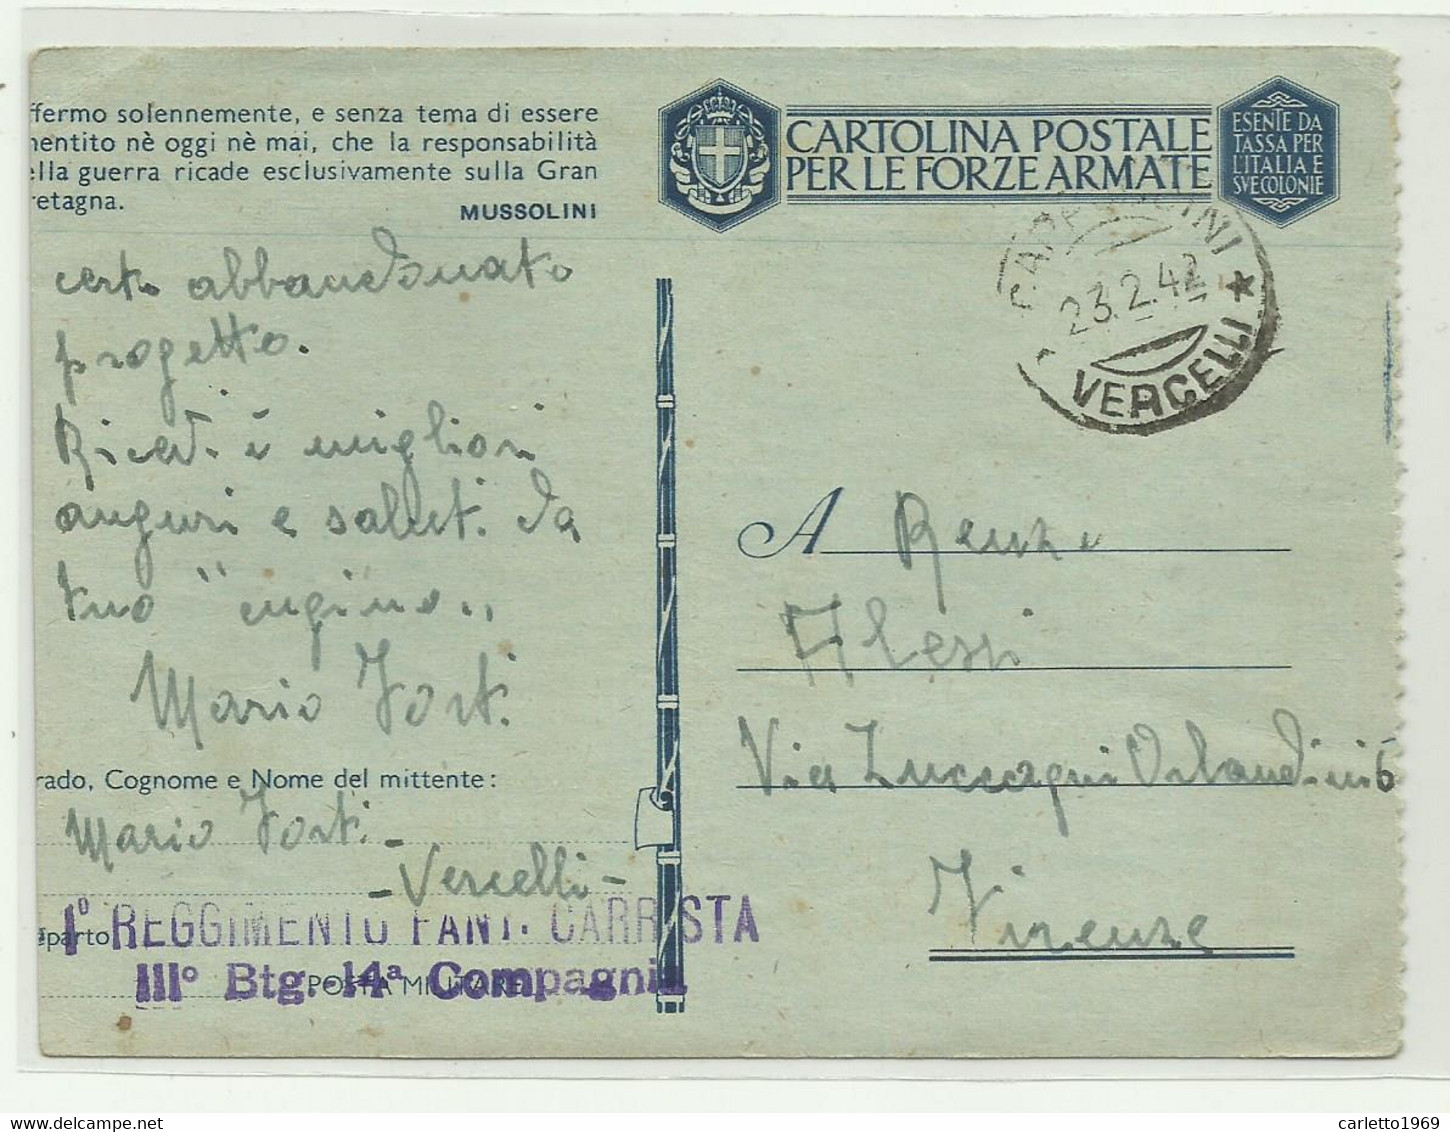 ffermo solennemente, e senza tema di essere
mentito nè oggi nè mai, che la responsabilità
ella guerra ricade esclusivamente sulla Gran
retagna.
MUSSOLINI
CARTOLINA POSTALE
PER LE FORZE ARMATE
ESENTE DA
TASSA PER
L'ITALIA E
SVE COLONIE
23.2.42
VERCELLI
certo abbandonato
progetto.
Ricevi i migliori
auguri e saluti da
tuo "cugino"
Mario Forti
rado, Cognome e Nome del mittente:
Mario Forti -
- Vercelli -
eparto
1° REGGIMENTO FANT. CARRISTA
III° Btg. 14ª Compagnia
POSTA MILITARE
A Renzo
Alessi
Via Luccagni Orlandini 6
Firenze
carletto1969